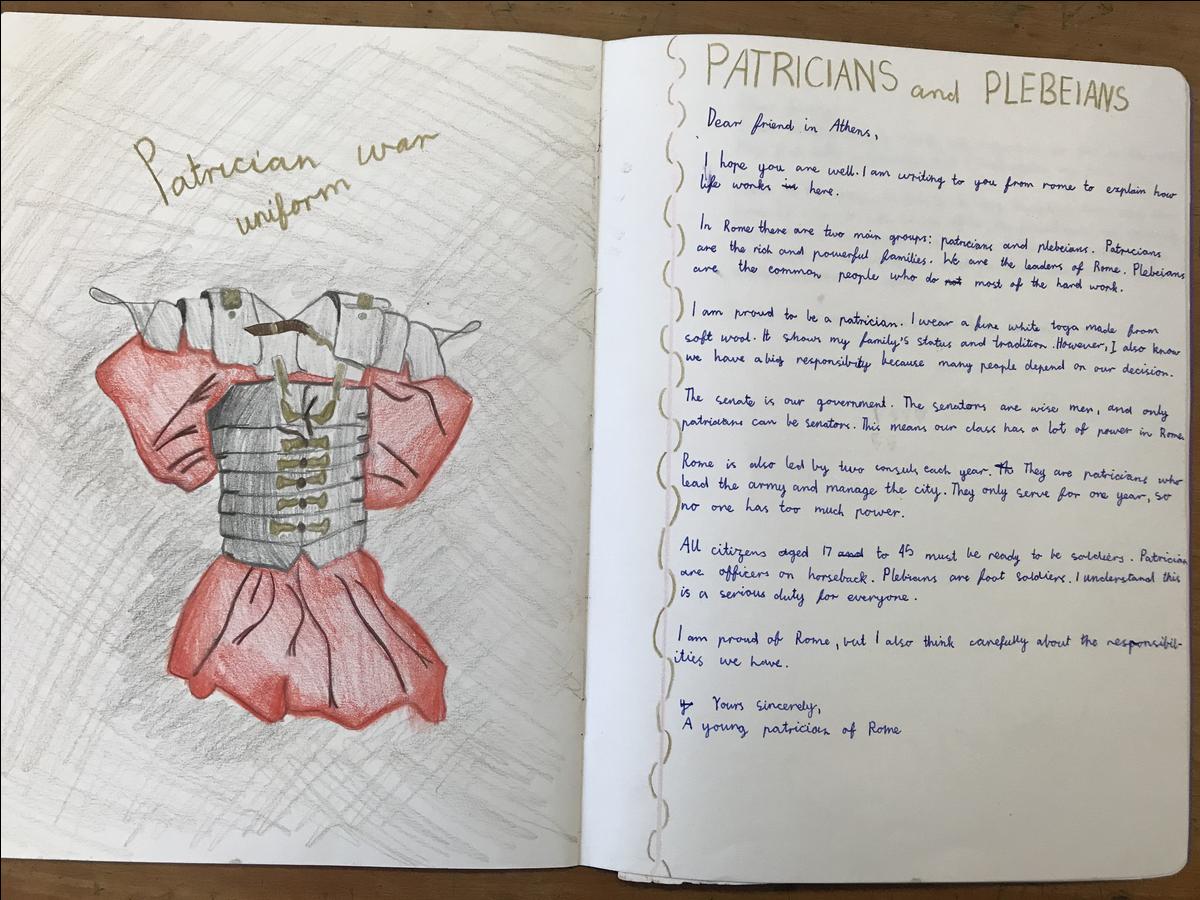 Patrician war
uniform
PATRICIANS and PLEBEIANS
Dear friend in Athens,
I hope you are well. I am writing to you from rome to explain how
life works in here.
In Rome there are two main groups: patricians and plebeians. Patricians
are the rich and powerful families. We are the leaders of Rome. Plebeians
are the common people who do not most of the hard work.
I am proud to be a patrician. I wear a fine white toga made from
soft wool. It shows my family's status and tradition. However, I also know
we have a big responsibility because many people depend on our decision.
The senate is our government. The senators are wise men, and only
patricians can be senators. This means our class has a lot of power in Rome.
Rome is also led by two consuls each year. Th They are patricians who
lead the army and manage the city. They only serve for one year, so
no one has too much power.
All citizens aged 17 and to 45 must be ready to be soldiers. Patrician
are officers on horseback. Plebians are foot soldiers. I understand this
is a serious duty for everyone.
I am proud of Rome, but I also think carefully about the responsibil-
ities we have.
y Yours sincerely,
A young patrician of Rome